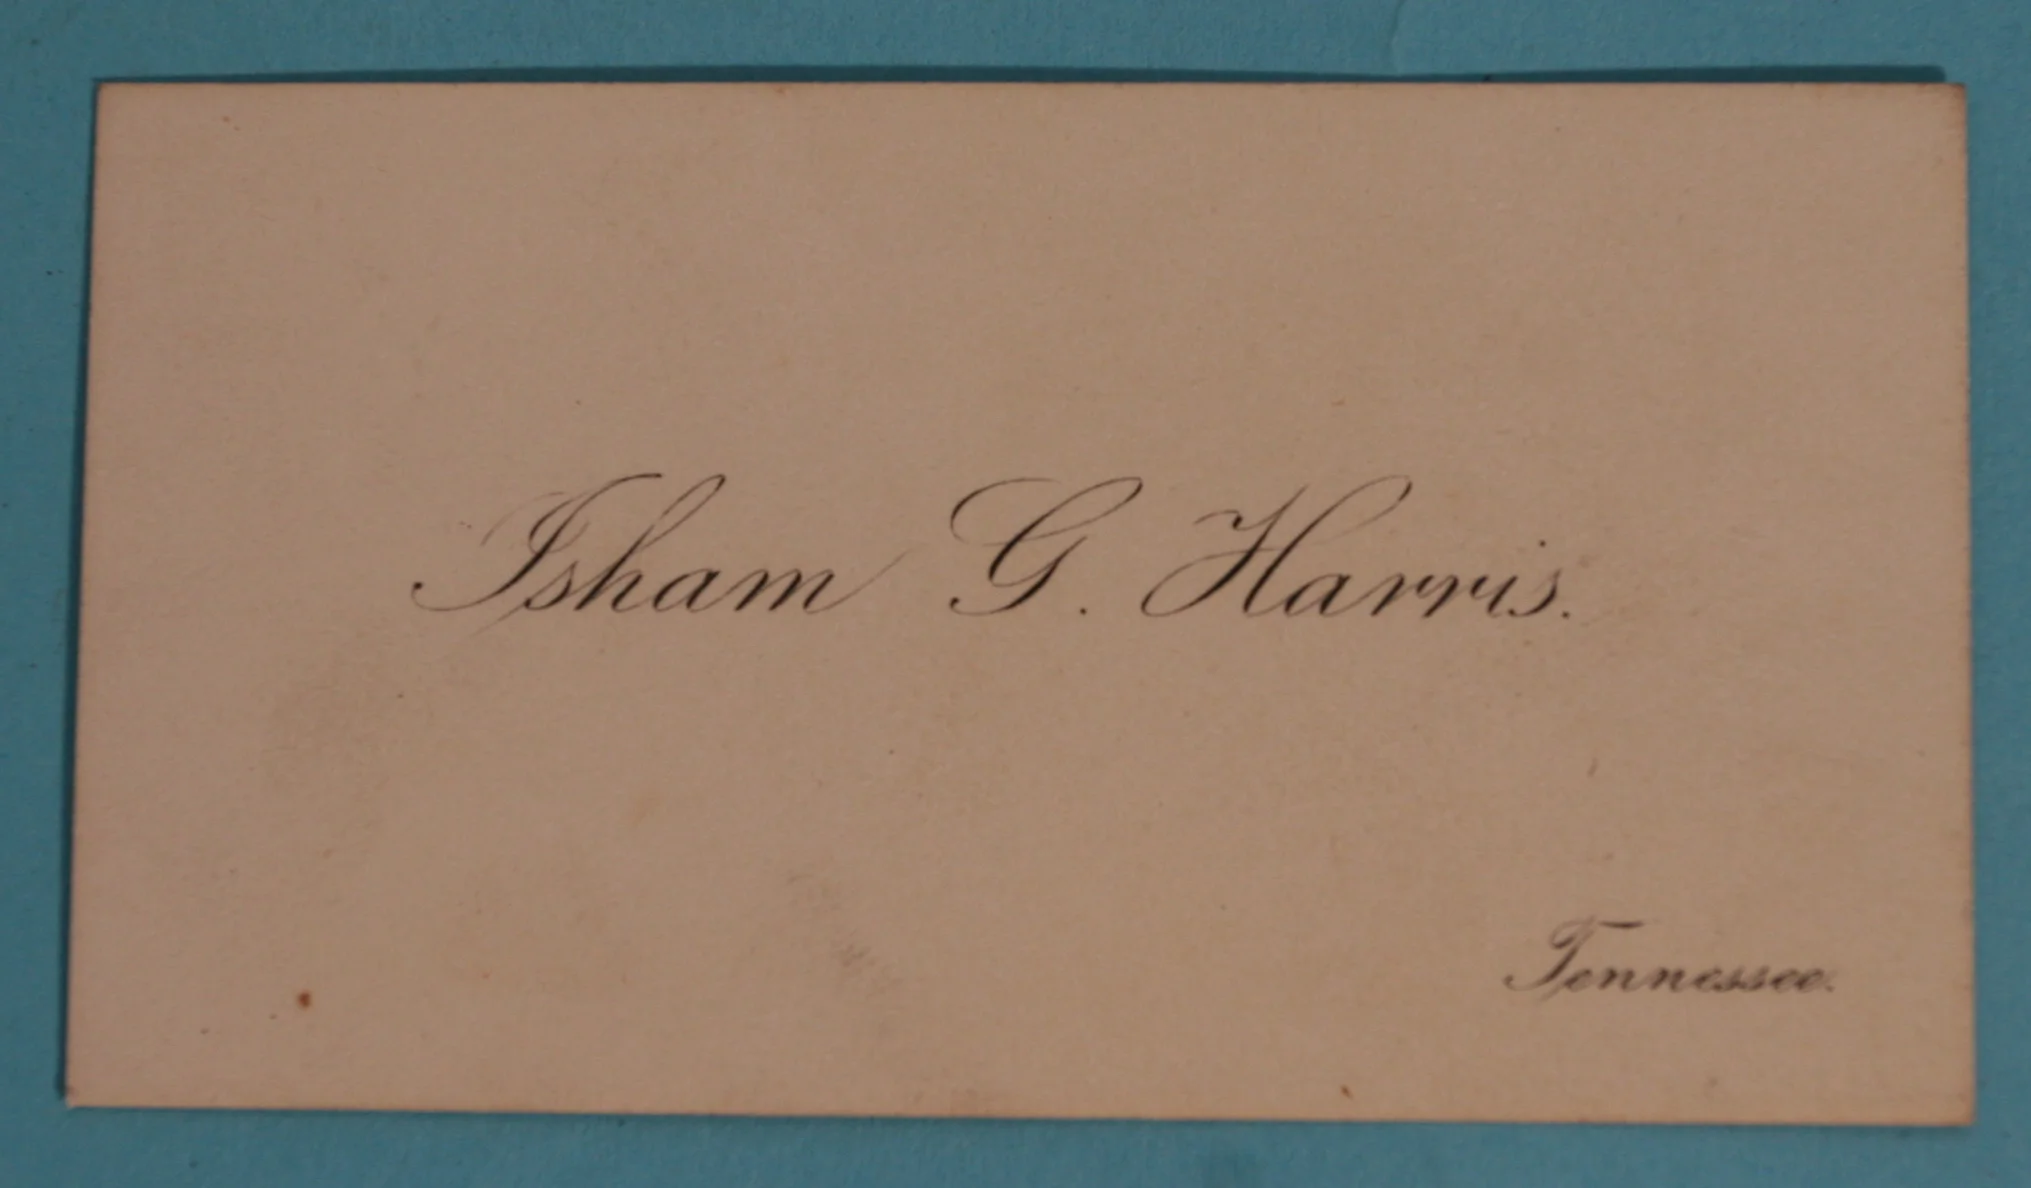 Isham G. Harris.
Tennessee.